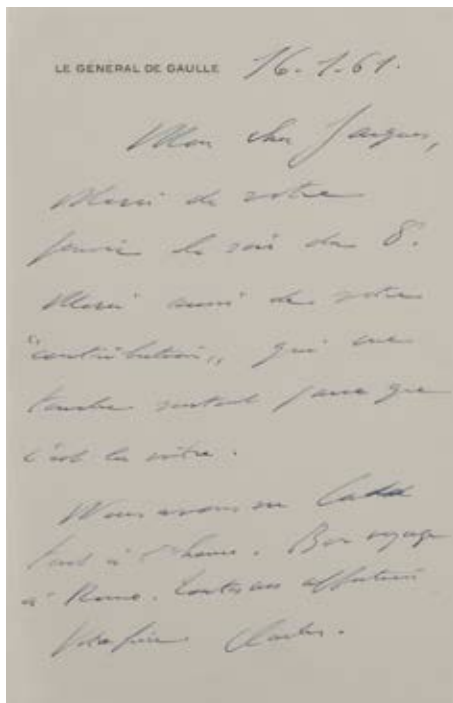 LE GENERAL DE GAULLE 16.1.61.
Mon cher Jacques,
Merci de votre
pensée le soir du 8.
Merci aussi de votre
"contribution", qui me
touche surtout parce que
c'est la vôtre.
Nous avons vu
tout à l'heure. Bon voyage
à Rome. affection
Votre frère Charles.